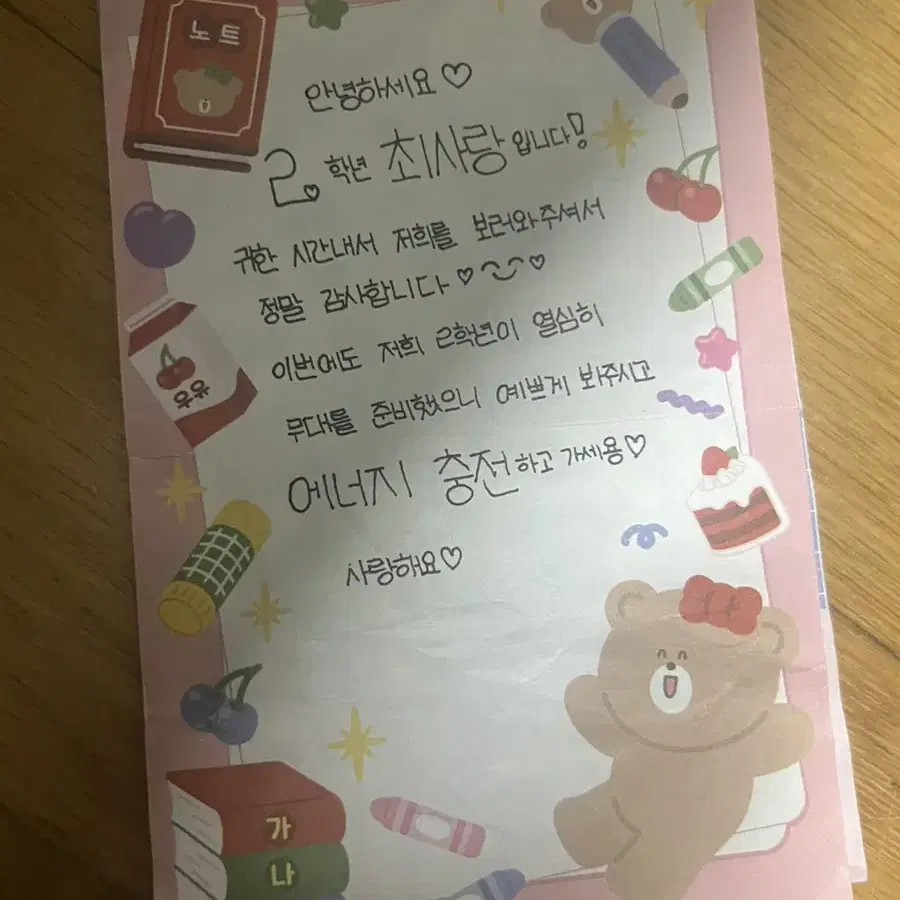 노트
안녕하세요♡
2학년 최사랑입니다!
귀한 시간내서 저희를 보러와주셔서
정말 감사합니다♡♡
이번에도 저희 2학년이 열심히
무대를 준비했으니 예쁘게 봐주시고
에너지 충전하고 가세용♡
사랑해요♡
우유
가
나